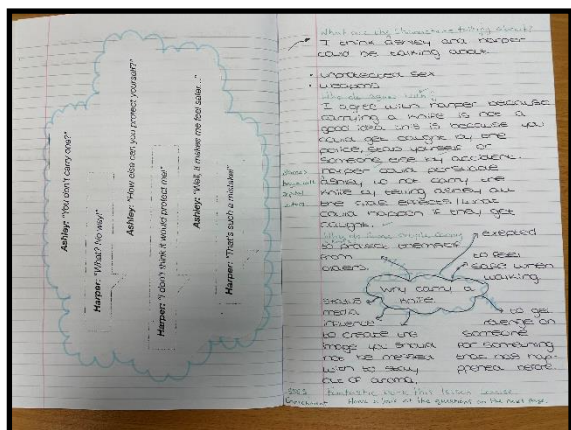 Ashley: "You don't carry one?"
Harper: "What? No way!"
Ashley: "How else can you protect yourself?"
Harper: "I don't think it would protect me!"
Ashley: "Well, it makes me feel safer..."
Harper: "That's such a mistake!"
What are the characters talking about?
I think ashley and harper
could be talking about
• unprotected sex
• weapons
Who do agree with?
I agree with harper because
carrying a knife is not a
good idea this is because you
could get caught by the
police, stab yourself or
someone else by accident.
harper could persuade
ashley to not carry the
knife by telling ashley all
the side effects/what
could happen if they get
caught.
Why do some people carry
to protect themself
from
others.
expected
to feel
safe when
walking
why carry a
knife
to get
revenge on
someone
for something
that has hap-
pened before.
media
influence
to create the
image you should
not be messed
with to stay
out of drama.
fantastic work this lesson
Have a look at the questions on the next page.